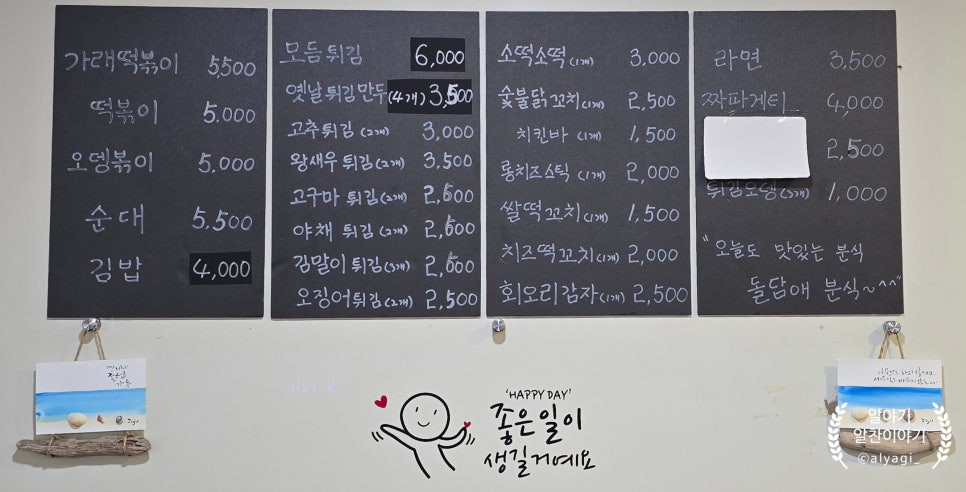 가래떡볶이 5,500
떡볶이 5,000
오뎅볶이 5,000
순대 5,500
김밥 4,000
모듬튀김 6,000
옛날튀김만두(4개) 3,500
고추튀김(2개) 3,000
왕새우튀김(2개) 3,500
고구마튀김(2개) 2,500
야채튀김(2개) 2,500
김말이튀김(3개) 2,500
오징어튀김(2개) 2,500
소떡소떡(1개) 3,000
숯불닭꼬치(1개) 2,500
치킨바(1개) 1,500
롱치즈스틱(1개) 2,000
쌀떡꼬치(1개) 1,500
치즈떡꼬치(1개) 2,000
회오리감자(1개) 2,500
라면 3,500
짜파게티 4,000
2,500
튀김오뎅 1,000
"오늘도 맛있는 분식
돌담애 분식~^^"
'HAPPY DAY'
좋은일이
생길거예요
알야기
알찬이야기
@alyagi_